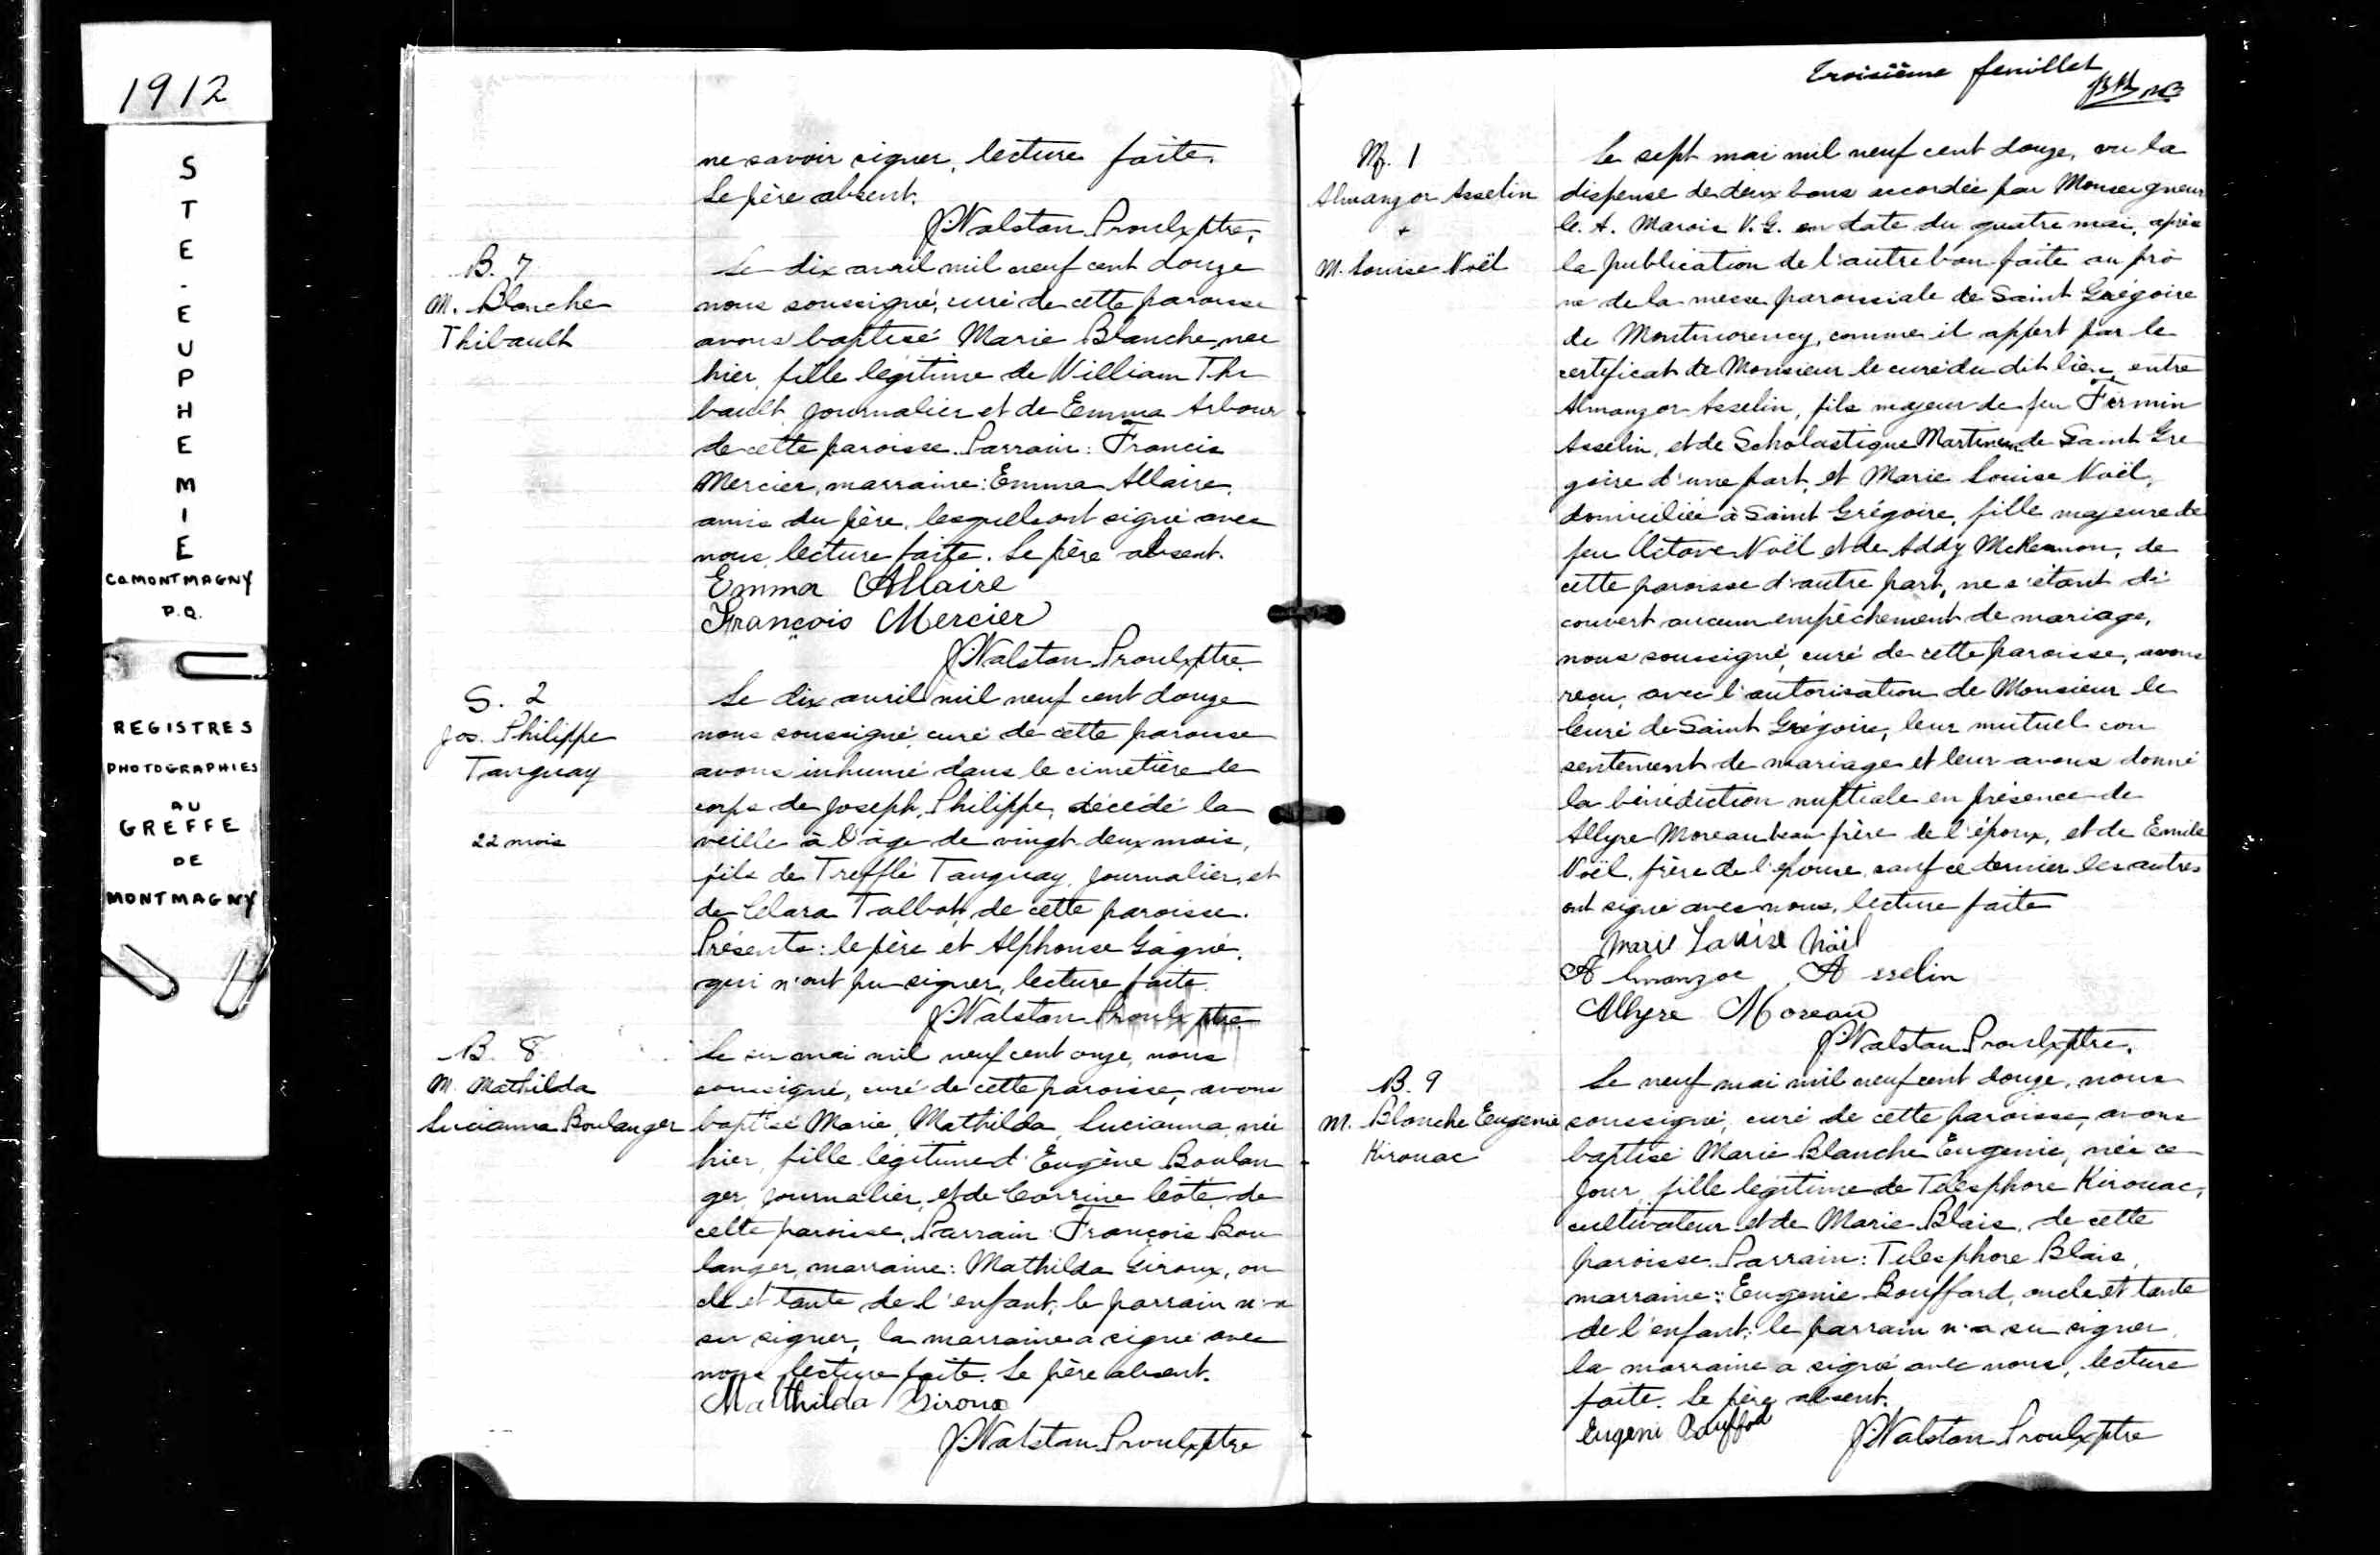 1912
STE-EUPHEMIE
Co MONTMAGNY
P.Q.
REGISTRES
PHOTOGRAPHIES
AU
GREFFE
DE
MONTMAGNY
ne savoir signer, lecture faite.
Le père absent.
J. Walstan Proulx ptre.
B. 7
M. Blanche
Thibault
Le dix avril mil neuf cent douze
nous soussigné, curé de cette paroisse
avons baptisé Marie Blanche, née
hier, fille légitime de William Thi
bault, journalier et de Emma Arbour
de cette paroisse. Parrain: Francis
Mercier, marraine: Emma Allaire,
amis du père, lesquels ont signé avec
nous, lecture faite. Le père absent.
Emma Allaire
François Mercier
J. Walstan Proulx ptre.
S. 2
Jos. Philippe
Tanguay
22 mois
Le dix avril mil neuf cent douze
nous soussigné, curé de cette paroisse
avons inhumé dans le cimetière le
corps de Joseph, Philippe, décédé la
veille à l'âge de vingt-deux mois,
fils de Trefflé Tanguay, journalier, et
de Clara Talbot de cette paroisse.
Présents: le père et Alphonse Gagné,
qui n'ont pu signer, lecture faite.
J. Walstan Proulx ptre
B. 8
M. Mathilda
Lucianna Boulanger
Le mai mil neuf cent onze, nous
soussigné, curé de cette paroisse, avons
baptisé Marie, Mathilda, Lucianna, née
hier, fille légitime d'Eugène Boulan
ger, journalier, et de Corrine Côté, de
cette paroisse. Parrain: François Bou
langer, marraine: Mathilda Giroux, on
cle et tante de l'enfant; le parrain n'a
su signer, la marraine a signé avec
nous, lecture faite. Le père absent.
Mathilda Giroux
J. Walstan Proulx ptre
Troisième feuillet
M. 1
Almanzor Asselin
+
M. Louise Noël
Le sept mai mil neuf cent douze, vu la
dispense de deux bans accordée par Monseigneur
C. A. Marois V. G. en date du quatre mai, après
la publication de l'autre ban faite au prô
ne de la messe paroissiale de Saint Grégoire
de Montmorency, comme il appert par le
certificat de Monsieur le curé du dit lieu, entre
Almanzor Asselin, fils majeur de feu Firmin
Asselin, et de Scholastique Martineau de Saint Gré
goire d'une part, et Marie Louise Noël,
domiciliée à Saint Grégoire, fille majeure de
feu Octave Noël et de Addy McKennon, de
cette paroisse d'autre part, ne s'étant dé
couvert aucun empêchement de mariage,
nous soussigné, curé de cette paroisse, avons
reçu, avec l'autorisation de Monsieur le
Curé de Saint Grégoire, leur mutuel con
sentement de mariage et leur avons donné
la bénédiction nuptiale en présence de
Allyre Moreau beau-frère de l'époux, et de Emile
Noël, frère de l'épouse, sauf ce dernier les autres
ont signé avec nous, lecture faite
Marie Louise Noël
Almanzor Asselin
Allyre Moreau
J. Walstan Proulx ptre.
B. 9
M. Blanche Eugenie
Kirouac
Le neuf mai mil neuf cent douze, nous
soussigné, curé de cette paroisse, avons
baptisé Marie Blanche Eugenie, née ce
jour, fille légitime de Telesphore Kirouac,
cultivateur et de Marie Blais, de cette
paroisse. Parrain: Telesphore Blais,
marraine: Eugenie Bouffard, oncle et tante
de l'enfant; le parrain n'a su signer,
la marraine a signé avec nous, lecture
faite. Le père absent.
Eugeni Bouffard
J. Walstan Proulx ptre